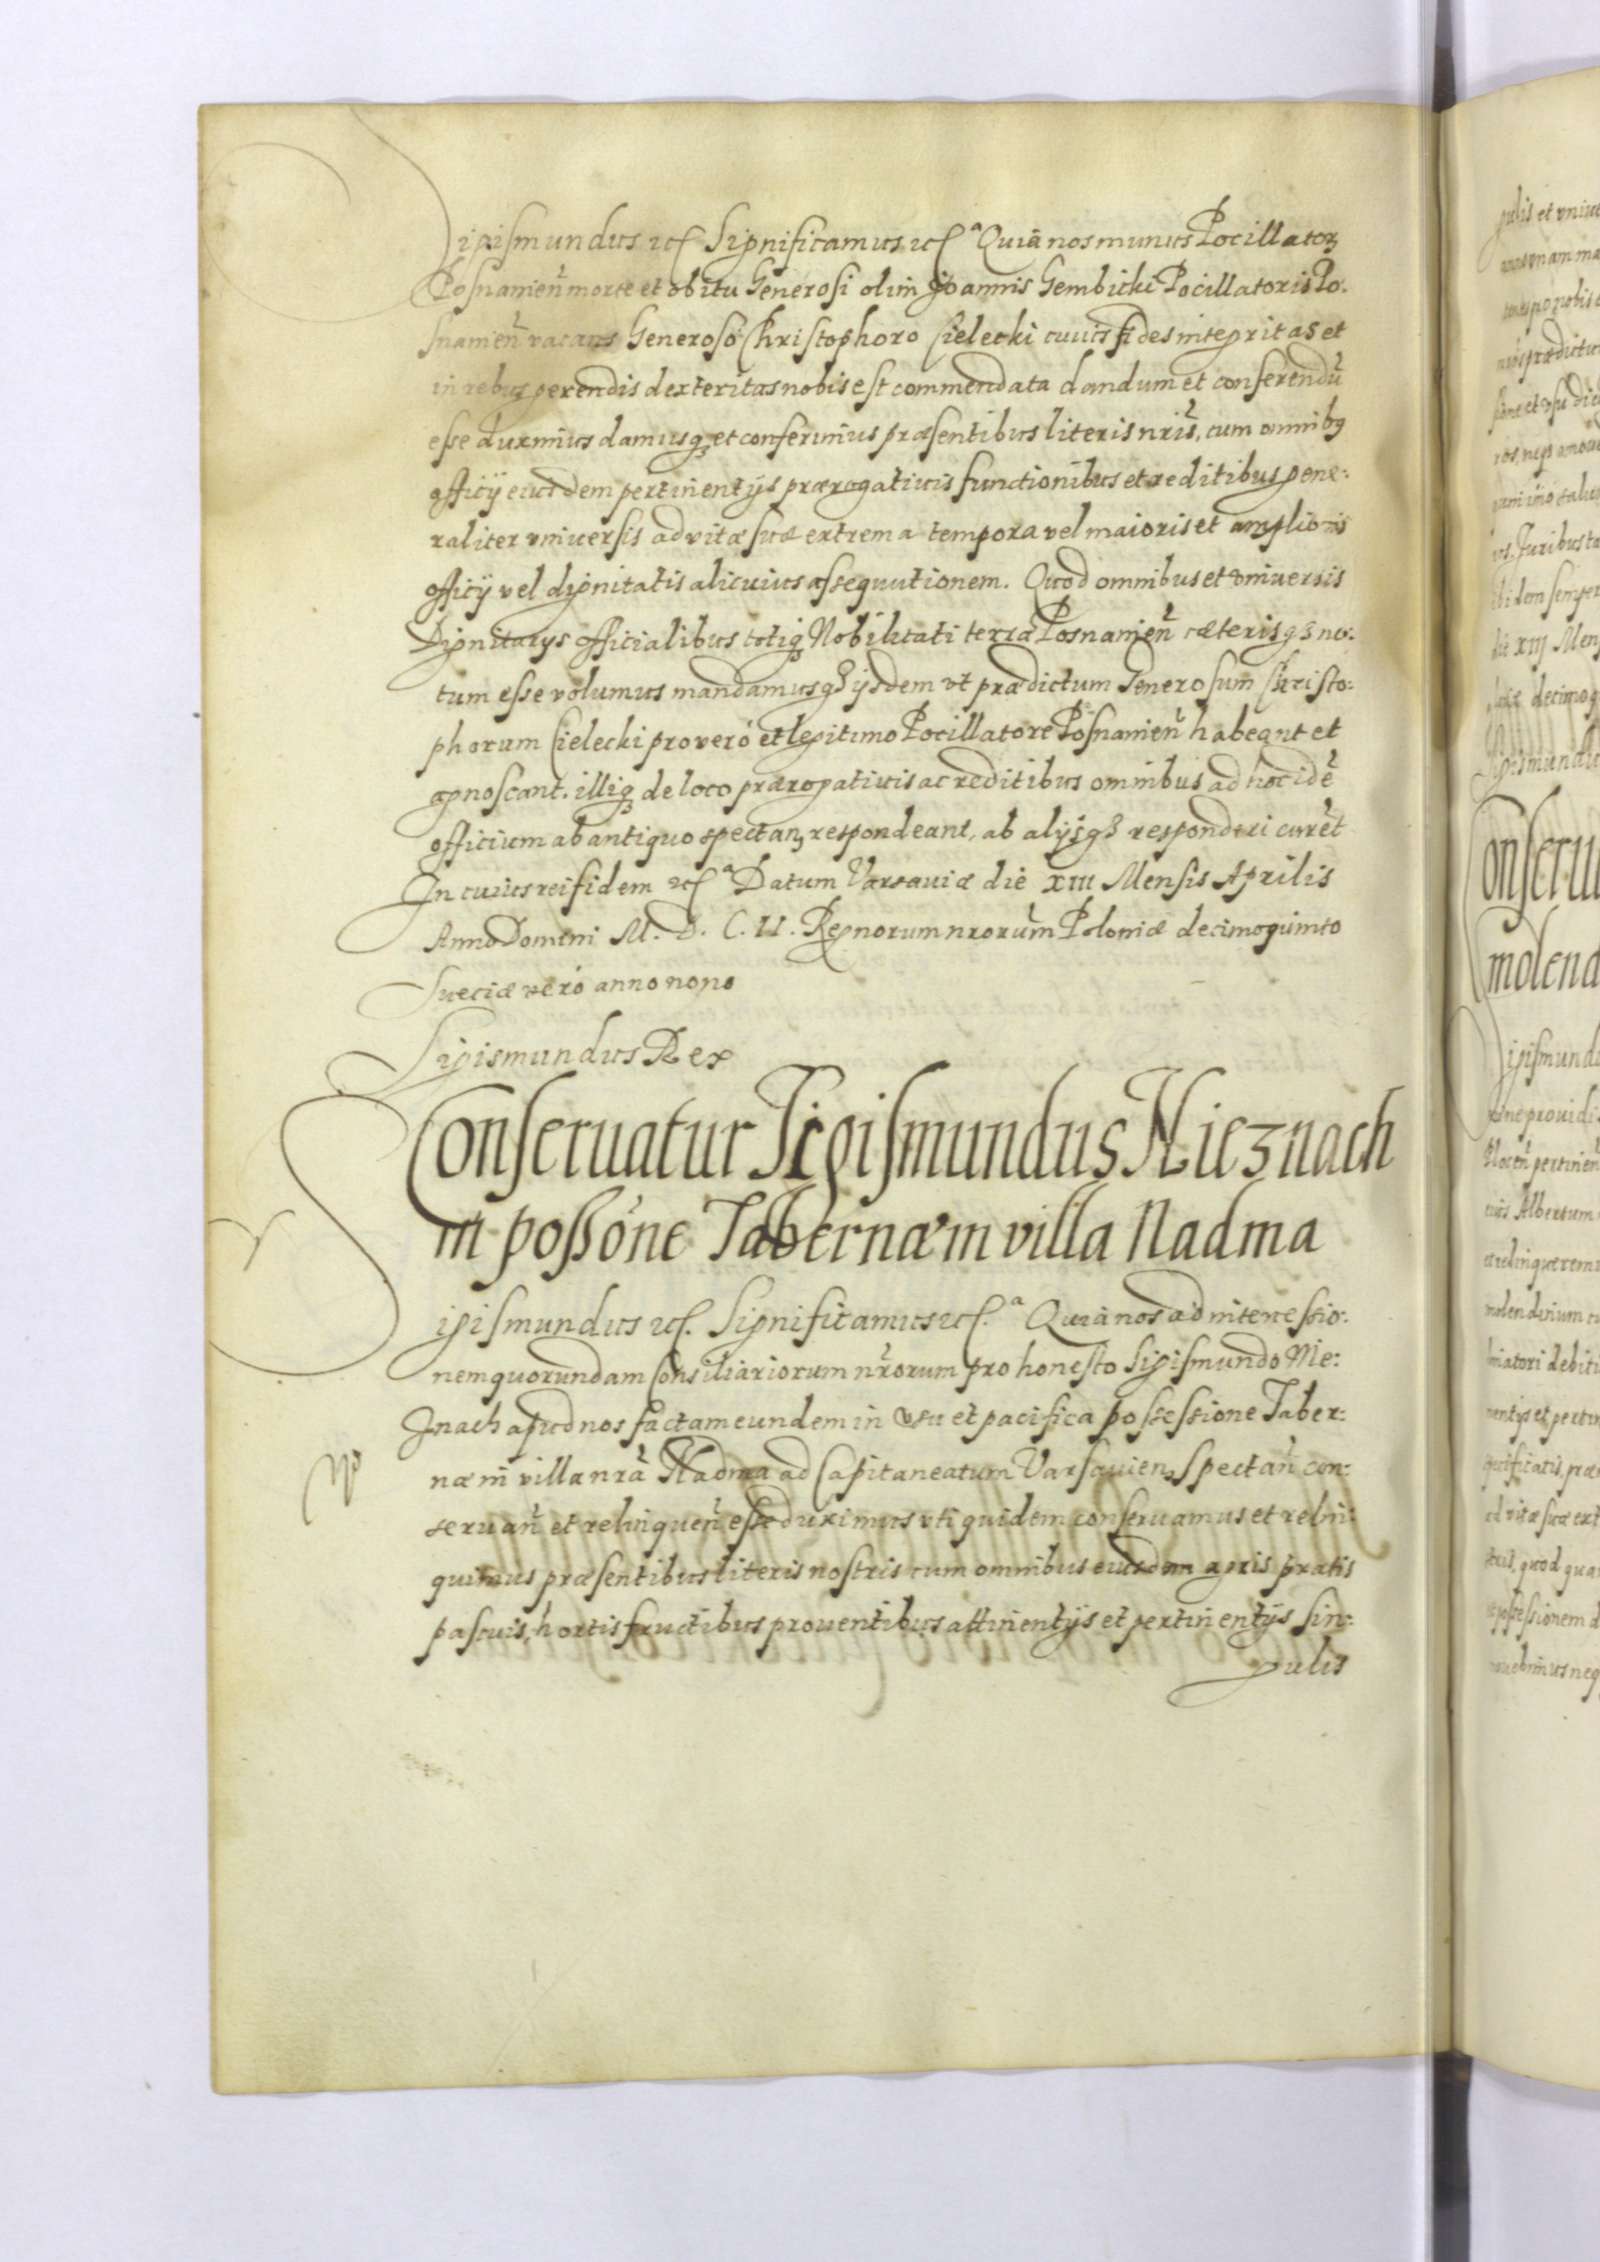 Sigismundus etc. Significamus etc.ª Quia nos munus Pocillator
Posnanien̄ morte et obitu Generosi olim Joannis Gembicki Pocillatoris Po:
snamien̄ vacans Generoso Christophoro Cielecki cuius fides integritas et
in rebus gerendis dexteritas nobis est commendata dandum et conferendū
esse duximus damusq₃ et conferimus præsentibus literis nr̄is, cum omnibus
officij eiusdem pertinentijs prærogatiuis functionibus et reditibus gene:
raliter vniuersis ad vitæ suæ extrema tempora vel maioris et amplioris
officij vel dignitatis alicuius assequutionem. Quod omnibus et vniuersis
Dignitarijs officialibus totiq₃ Nobilitati terræ Posnanien̄ cæterisq₃ no:
tum esse volumus mandamusq₃ ijsdem vt prædictum Generosum Christo:
phorum Cielecki pro vero et legitimo Pocillatore Posnanien̄ habeant et
agnoscant. illiq₃ de loco prærogatiuis ac reditibus omnibus ad hoc idē
officium ab antiquo spectan₃ respondeant, ab alijsq₃ responderi curēt
In cuius rei fidem etc.ª Datum Varsauiæ die XIII Mensis Aprilis
Anno Domini M. D. C. II. Regnorum nrorum̄ Poloniæ decimoquinto
Sueciæ vero anno nono
Sigismundus Rex
Conseruatur Sigismundus Nieznach
in possōne Tabernæ in villa Nadma
Sigismundus etc. Significamus etc.ª Quia nos ad intercessio:
nem quorundam Consiliariorum nr̄orum pro honesto Sigismundo Nie:
znach apud nos factam eundem in vsu et pacifica possessione Taber:
næ in villa nrā Nadma ad Capitaneatum Varsauien₃ Spectan̄ con:
seruan̄ et relinquen̄ esse duximus vti quidem conseruamus et relin:
quimus præsentibus literis nostris cum omnibus eiusdem agris pratis
pascuis, hortis fructibus prouentibus attinentijs et pertinentijs sin:
gulis